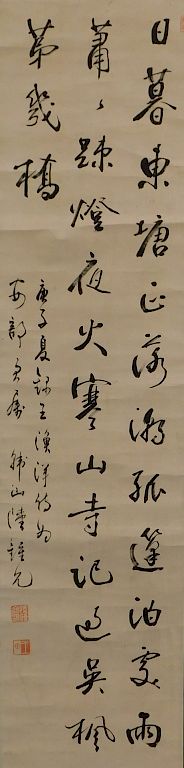 日暮東塘正落潮孤篷泊處雨
蕭々踈燈夜火寒山寺記過吳楓
第幾橋
庚子夏錄王漁洋詩為
安部 屬 韓山陸鍾允